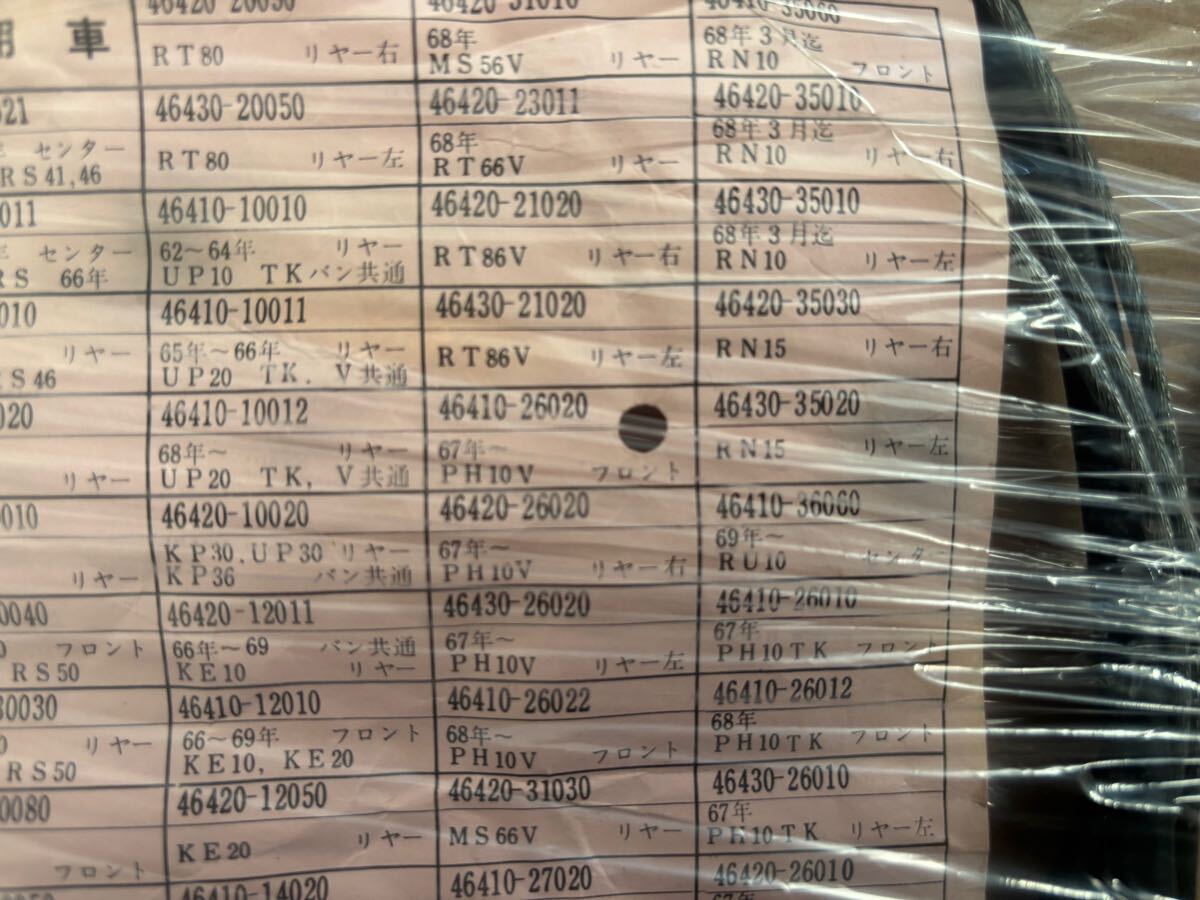 用 車
521
センター
RS41,46
011
センター
RS 66年
010
リヤー
RS46
020
リヤー
0010
リヤー
0040
0 フロント
RS50
30030
0 リヤー
RS50
0080
フロント
46420-20050
RT80 リヤー右
46430-20050
RT80 リヤー左
46410-10010
62〜64年 リヤー
UP10 TKバン共通
46410-10011
65年〜66年 リヤー
UP20 TK, V共通
46410-10012
68年〜 リヤー
UP20 TK, V共通
46420-10020
KP30,UP30 リヤー
KP36 バン共通
46420-12011
66年〜69 バン共通
KE10 リヤー
46410-12010
66〜69年 フロント
KE10, KE20
46420-12050
KE20 リヤー
46410-14020
46420-31010
68年
MS56V リヤー
46420-23011
68年
RT66V リヤー
46420-21020
RT86V リヤー右
46430-21020
RT86V リヤー左
46410-26020
67年〜
PH10V フロント
46420-26020
67年〜
PH10V リヤー右
46430-26020
67年〜
PH10V リヤー左
46410-26022
68年〜
PH10V フロント
46420-31030
MS66V リヤー
46410-27020
46410-35060
68年3月迄
RN10 フロント
46420-35010
68年3月迄
RN10 リヤー右
46430-35010
68年3月迄
RN10 リヤー左
46420-35030
RN15 リヤー右
46430-35020
RN15 リヤー左
46410-36060
69年〜
RU10 センター
46410-26010
67年
PH10TK フロント
46410-26012
68年
PH10TK フロント
46430-26010
67年
PH10TK リヤー左
46420-26010
67年